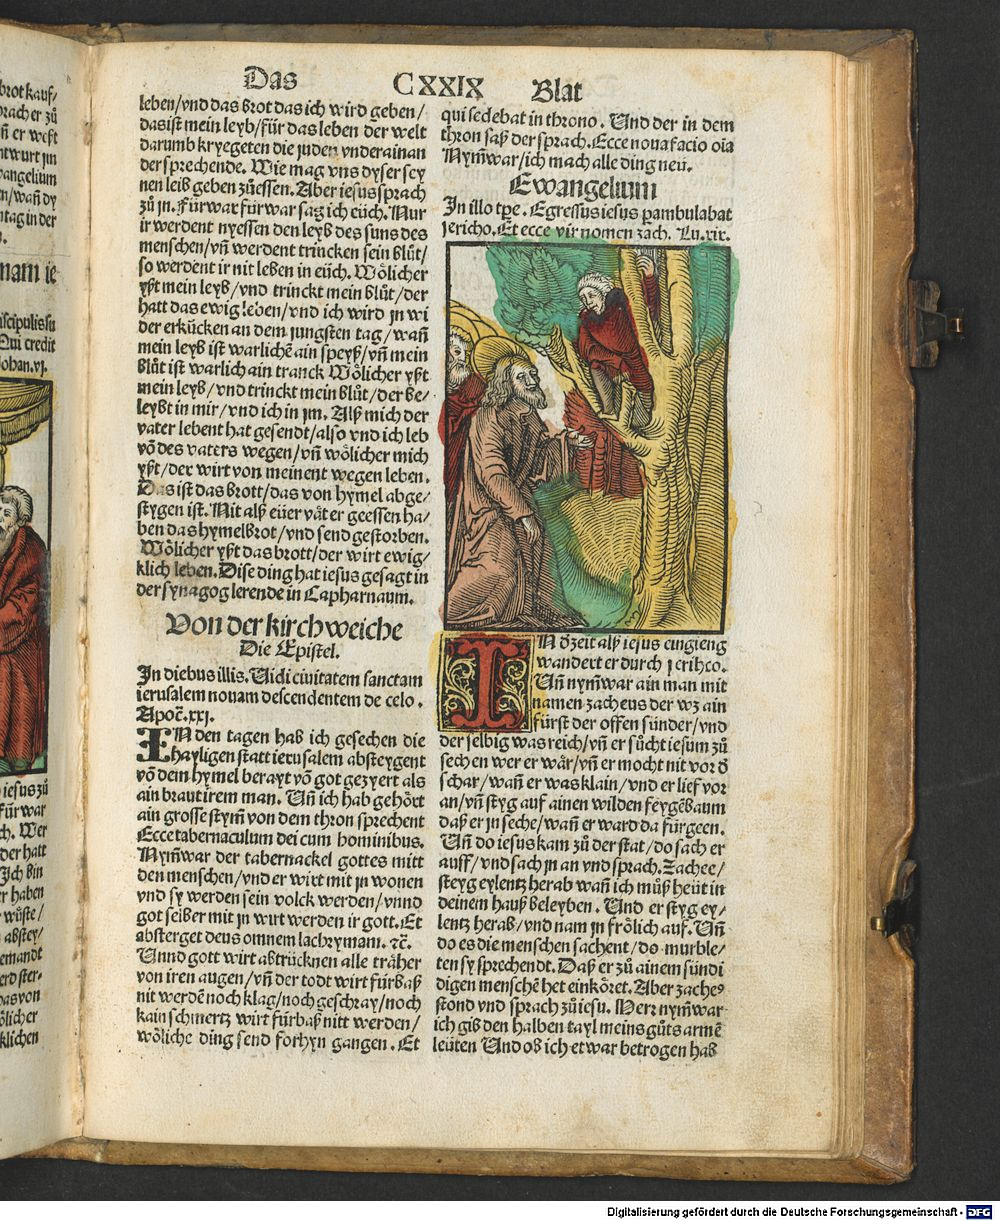 Das CXXIX Blat
leben/vnd das brot das ich wird geben/
das ist mein leyb/für das leben der welt
darumb kryegeten die juden vnderainan
der sprechende. Wie mag vns dyser sey
nen leib geben zůessen. Aber iesus sprach
zů jn. Fürwar fürwar sag ich eüch. Nur
ir werdent nyessen den leyb des suns des
menschen/vñ werdent trincken sein blůt/
so werdent ir nit leben in eüch. Wölicher
yßt mein leyb/vnd trinckt mein blůt/der
hatt das ewig leben/vnd ich wird jn wi
der erkücken an dem jungsten tag/wañ
mein leyb ist warlichē ain speyß/vñ mein
blůt ist warlich ain tranck Wölicher yßt
mein leyb/vnd trinckt mein blůt/der be/
leybt in mir/vnd ich in jm. Alß mich der
vater lebent hat gesendt/also vnd ich leb
vō des vaters wegen/vñ wölicher mich
yßt/der wirt von meinent wegen leben.
Das ist das brott/das von hymel abge/
stygen ist. Nit alß eüer våter geessen ha/
ben das hymelbrot/vnd send gestorben.
Wölicher yßt das brott/der wirt ewig/
klich leben. Dise ding hat iesus gesagt in
der synagog lerende in Capharnaum.
Von der kirchweiche
Die Epistel.
In diebus illis. Uidi ciuitatem sanctam
ierusalem nouam descendentem de celo.
Apoc̄.xxi.
IN den tagen hab ich gesechen die
hayligen statt ierusalem absteygent
vō dem hymel berayt vō got gezyert als
ain braut irem man. Uñ ich hab gehört
ain grosse stym̄ von dem thron sprechent
Ecce tabernaculum dei cum hominibus.
Nym̄war der tabernackel gottes mitt
den menschen/vnd er wirt mit jn wonen
vnd sy werden sein volck werden/vnnd
got selber mit jn wirt werden ir gott. Et
absterget deus omnem lachrymam. ꝛc̄.
Unnd gott wirt abtrücknen alle träher
von iren augen/vñ der todt wirt fürbaß
nit werdē noch klag/noch geschray/noch
kain schmertz wirt fürbaß nitt werden/
wöliche ding send forhyn gangen. Et
qui sedebat in throno. Und der in dem
thron saß der sprach. Ecce noua facio oīa
Nym̄war/ich mach alle ding neü.
Ewangelium
In illo tp̄e. Egressus iesus ꝑambulabat
jericho. Et ecce vir nomen zach. Lu.xix.
IN ď zeit alß iesus eingieng
wandert er durch jerihco.
Uñ nym̄war ain man mit
namen zacheus der wz ain
fürst der offen sünder/vnd
der selbig was reich/vñ er sůcht iesum zů
sechen wer er wår/vñ er mocht nit vor ď
schar/wañ er was klain/vnd er lief vor
an/vñ styg auf ainen wilden feygēbaum
daß er jn seche/wañ er ward da fürgeen.
Uñ do iesus kam zů der stat/do sach er
auff/vnd sach jn an vnd sprach. Zachee/
steyg eylentz herab wañ ich můß heüt in
deinem hauß beleyben. Und er styg ey/
lentz herab/vnd nam jn frölich auf. Uñ
do es die menschen sachent/do murble/
ten sy sprechendt. Daß er zů ainem sündi
digen menschē het einköret. Aber zacheꝰ
stond vnd sprach zů iesu. Herr nym̄war
ich gib den halben tayl meins gůts armē
leüten Und ob ich etwar betrogen hab
Digitalisierung gefördert durch die Deutsche Forschungsgemeinschaft - DFG